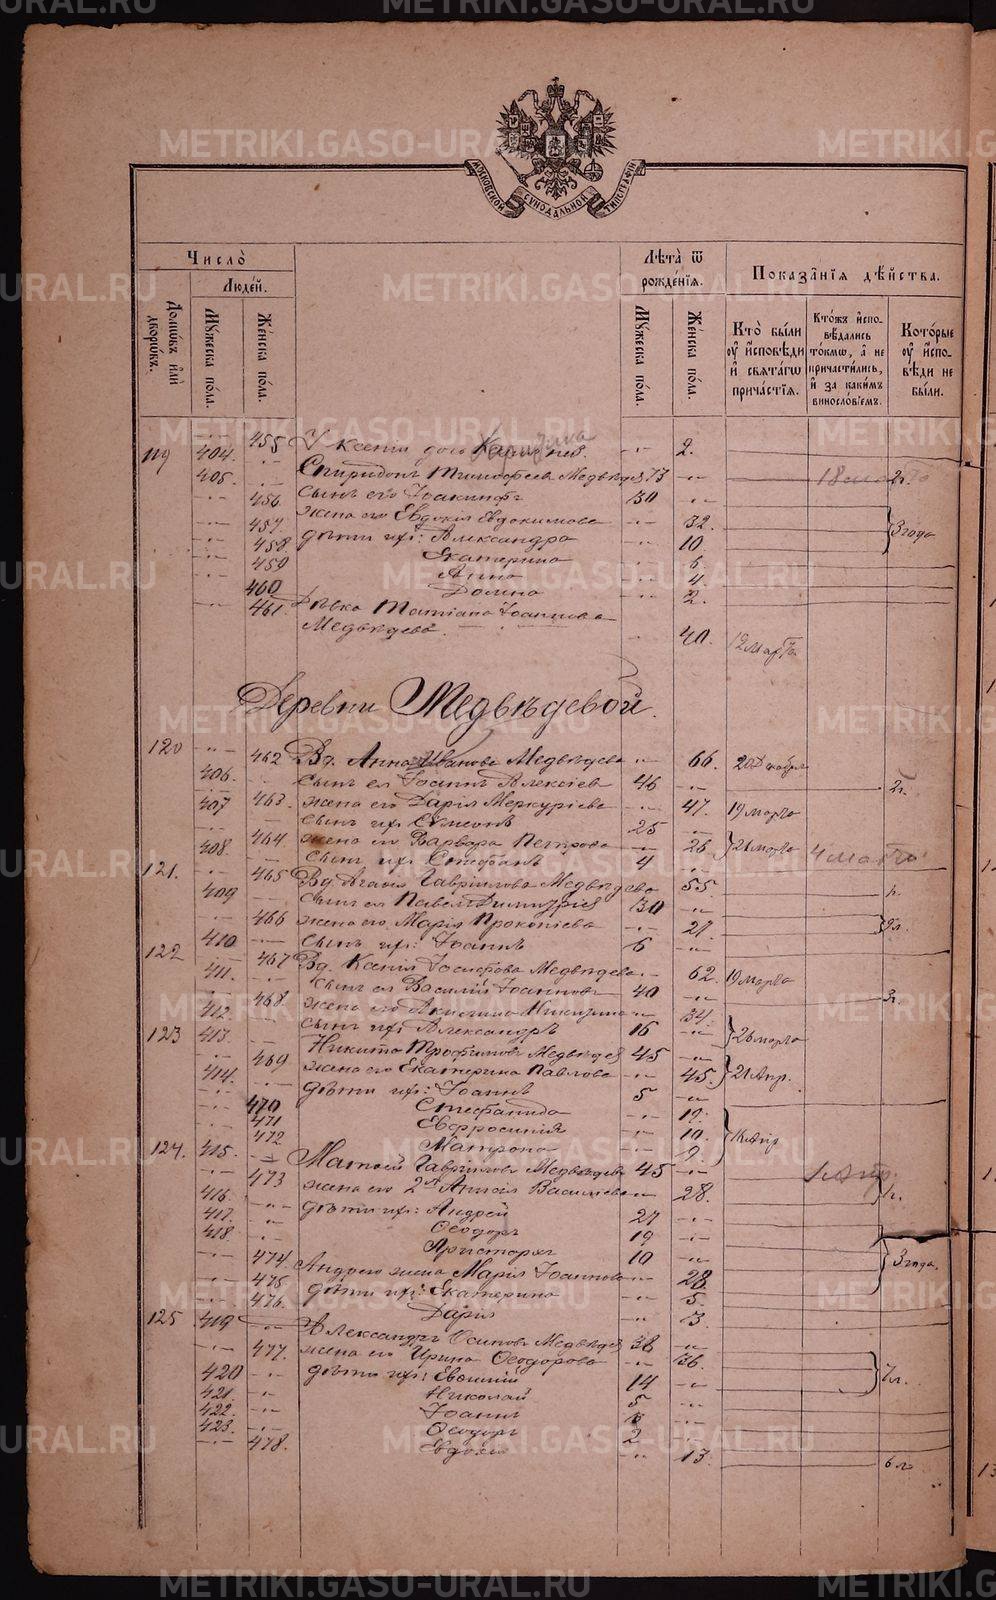 METRIKI.GASO-URAL.RU
МОСКОВСКОЙ СУНОДАЛЬНОЙ ТИПОГРАФІИ
Число
Людей.
Домωвъ или дворωвъ.
Мужеска пола.
Женска пола.
Лѣта ѿ рожденїѧ.
Мужеска пола.
Женска пола.
Показанїѧ дѣйства.
Кто были оу исповѣди и свѧтагω причастїѧ.
Ктожъ исповѣдались токмω, а не причастились, и за какимъ винословїемъ.
Которые оу исповѣди не были.
455 У Ксеніи дочь 2.
119 404. Спиридонъ Тимофеевъ Медвѣдев 73 2г.
405. сынъ его Іоакинфъ 30
456 жена его Евдокія Евдокимова 32. 3 года
457 дѣти ихъ: Александра 10
458 Екатерина 6
459 Анна 4
460 Домна 2.
461 Дѣвка Татіана Іоаннова
Медвѣдева. 40. 12 марта
Деревни Медвѣдевой.
120 462 Вд. Анна Иванова Медвѣдева 66.
406. сынъ ея Іоаннъ Алексіевъ 46 2г.
463. жена его Дарія Меркуріева 47. 19 марта
407 сынъ ихъ Симеонъ 25
464 жена его Варвара Петрова 26 21 марта
408 сынъ ихъ Стефанъ 4
121. 465 Вд. Агаѳія Гавріилова Медвѣдева 55
409 сынъ ея Павелъ Димитріев 30
466 жена его Марія Прокопіева 27
410 сынъ ихъ: Іоаннъ 6
122 467 Вд. Ксенія Іосифова Медвѣдева 62. 19 марта
411. сынъ ея Василій Іоанновъ 40 3г.
468. жена его Акилина Никитина 34
412. сынъ ихъ Александръ 16 26 марта
123 413. Никита Трофимовъ Медвѣдев 45
469 жена его Екатерина Павлова 45. 21 Апр.
414. дѣти ихъ: Іоаннъ 5
470 Стефанида 12.
471 Евфросинія 10.
472 Матрона
124. 415. Матѳей Гавріиловъ Медвѣдевъ 45 1 Апр.
473 жена его 2я Анисія Василіева 28.
416. дѣти ихъ: Андрей 27
417. Ѳеодоръ 19
418. Аристархъ 10
474. Андрея жена Марія Іоаннова 28 3 года.
475 дѣти ихъ: Екатерина 5.
476. Дарія 3
125 419 Александръ Осиповъ Медвѣдев 38
477. жена его Ирина Ѳеодорова 36.
420 дѣти ихъ: Евѳимій 14 7 л.
421. Николай 5
422. Іоаннъ 3
423. Ѳеодоръ 2
478. Евдокія 13. 6 л.